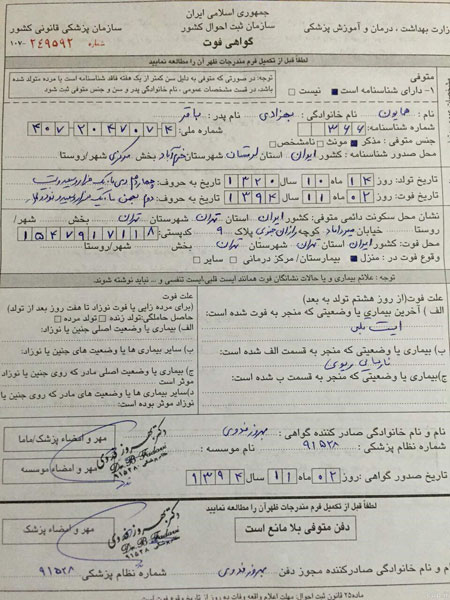 جمهوری اسلامی ایران
وزارت بهداشت ، درمان و آموزش پزشکی
سازمان ثبت احوال کشور
سازمان پزشکی قانونی کشور
گواهی فوت
شماره ۲۴۹۵۹۲ -۱۰۷
لطفاً قبل از تکمیل فرم مندرجات ظهر آن را مطالعه نمایید
متوفی
۱- دارای شناسنامه است ■ نیست □
توجه: در صورتی که متوفی به دلیل سن کمتر از یک هفته فاقد شناسنامه است یا مرده متولد شده
باشد، در قسمت مشخصات عمومی ، نام خانوادگی پدر و سن و جنس متوفی ثبت شود
نام : همایون نام خانوادگی : بهزادی نام پدر : باقر
شماره شناسنامه: ۳۶۶ شماره ملی:
جنس متوفی : مذکر ■ مونث □ نامشخص □
محل صدور شناسنامه : کشور ایران استان لرستان شهرستان خرم‌آباد بخش مرکزی شهر/روستا
تاریخ تولد: روز ۱۴ ماه ۱۰ سال ۱۳۲۰ تاریخ به حروف: چهاردهم دی ماه یکهزار و سیصد و بیست
تاریخ فوت: روز ۰۲ ماه ۱۱ سال ۱۳۹۴ تاریخ به حروف: دوم بهمن ماه یکهزار و سیصد و نود و چهار
نشان محل سکونت دائمی متوفی: کشور ایران استان تهران شهرستان تهران بخش
روستا خیابان میرداماد کوچه رازان جنوبی پلاک ۹ کدپستی: ۱۵۴۷۹۱۷۱۱۸
محل فوت: کشور ایران استان تهران شهرستان تهران بخش شهر/روستا
وقوع فوت در : منزل ■ بیمارستان/ مرکز درمانی □ سایر □
توجه : علائم بیماری و یا حالات نشانگان فوت همانند ایست قلبی،ایست تنفسی و ... نباید نوشته شوند
علت فوت(از روز هشتم تولد به بعد)
الف ) آخرین بیماری یا وضعیتی که منجر به فوت شده است:
ایست قلبی
ب) بیماری یا وضعیتی که منجر به قسمت الف شده است :
نارسایی ریوی
ج)بیماری یا وضعیتی که منجر به قسمت ب شده است:
علت فوت
(برای مرده زایی یا فوت نوزاد تا هفت روز بعد از تولد)
حاصل حاملگی: تولد زنده □ تولد مرده □
الف) بیماری یا وضعیت اصلی جنین یا نوزاد:
ب) سایر بیماری ها یا وضعیت های جنین یا نوزاد:
ج) بیماری یا وضعیت اصلی مادر که روی جنین یا نوزاد
موثر است
د)سایر بیماری ها یا وضعیت های مادر که روی جنین یا
نوزاد موثر بوده است
نام و نام خانوادگی صادر کننده گواهی : بهروز فدوی
شماره نظام پزشکی : ۹۱۵۲۸ نام موسسه :
تاریخ صدور گواهی: روز ۰۲ ماه ۱۱ سال ۱۳۹۴
دکتر بهروز فدوی
Dr. B.
۹۱۵۲۸
مهر و امضاء پزشک/ماما
مهر و امضاء موسسه
لطفاً قبل از تکمیل فرم مندرجات ظهر آن را مطالعه نمایید
دفن متوفی بلا مانع است
مهر و امضاء پزشک
دکتر بهروز فدوی
Dr. B.
۹۱۵۲۸
نام و نام خانوادگی صادرکننده مجوز دفن بهروز فدوی شماره نظام پزشکی ۹۱۵۲۸
ماده۲۵ قانون ثبت احوال، مهلت اعلام واقعه وفات ده روز از تاریخ وقوع فوت است